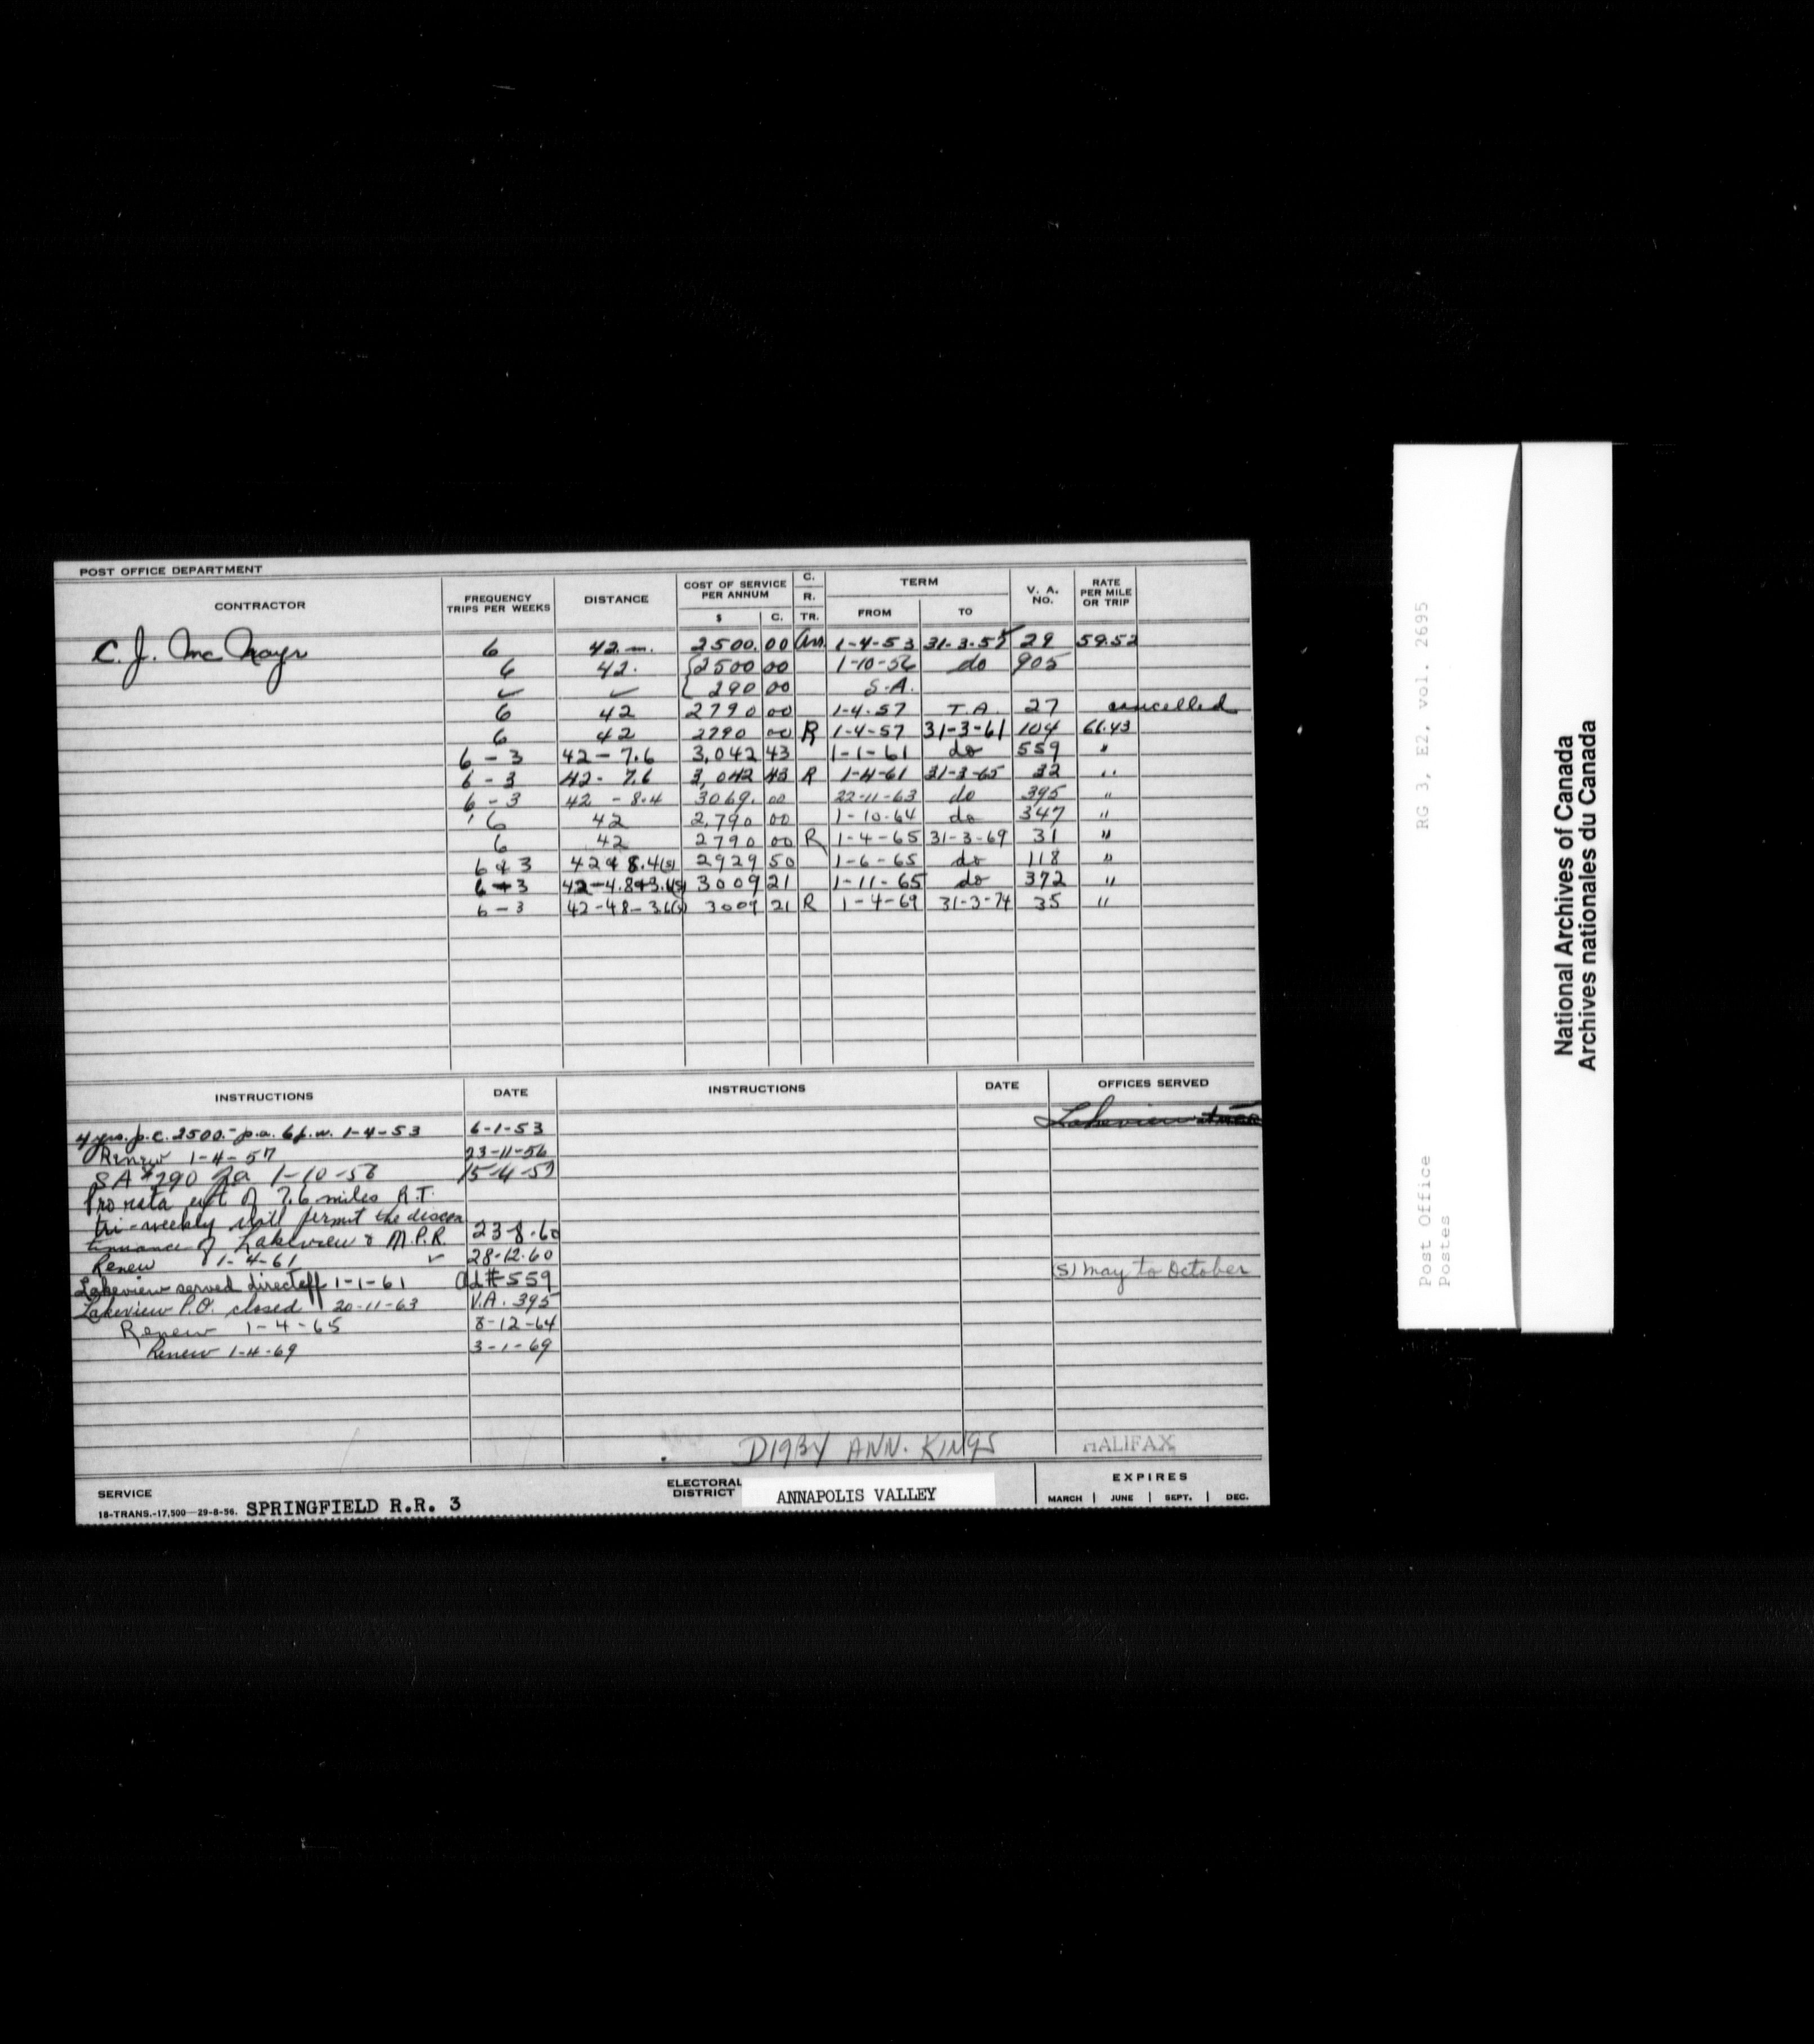 POST OFFICE DEPARTMENT
CONTRACTOR FREQUENCY TRIPS PER WEEKS DISTANCE COST OF SERVICE PER ANNUM $ C. C. R. TR. TERM FROM TO V. A. NO. RATE PER MILE OR TRIP
C. J. McNayr 6 42 m. 2500.00 1-4-53 31-3-57 29 59.52
6 42. {2500 00 1-10-56 do 905
✓ ✓ { 290 00 S.A.
6 42 2790 00 1-4-57 T.A. 27 cancelled
6 42 2790 00 R 1-4-57 31-3-61 104 66.43
6 - 3 42 - 7.6 3,042 43 1-1-61 do 559 "
6 - 3 42 - 7.6 3,042 43 R 1-4-61 31-3-65 32 "
6 - 3 42 - 8.4 3069. 00 22-11-63 do 395 "
6 42 2,790 00 1-10-64 do 347 "
6 42 2790 00 R 1-4-65 31-3-69 31 "
6 & 3 42 & 8.4(s) 2929 50 1-6-65 do 118 "
6 + 3 42-4.8+3.6(s) 3009 21 1-11-65 do 372 "
6 - 3 42-48-36(s) 3009 21 R 1-4-69 31-3-74 35 "
INSTRUCTIONS DATE INSTRUCTIONS DATE OFFICES SERVED
4 yrs. p.c. 2500.- p.a. 6 p.w. 1-4-53 6-1-53 Lakeview
Renew 1-4-57 23-11-56
SA $290 1-10-56 15-4-57
Pro rata ext of 7.6 miles R.T.
tri-weekly will permit the discon
tinuance of Lakeview & M.P.R. 23-8-60
Renew 1-4-61 ✓ 28-12-60
Lakeview served direct eff 1-1-61 #559
(S) May to October
Lakeview P.O. closed 20-11-63 V.A. 395
Renew 1-4-65 8-12-64
Renew 1-4-69 3-1-69
DIGBY ANN. KINGS HALIFAX
SERVICE SPRINGFIELD R.R. 3
18-TRANS.-17,500—29-8-56.
ELECTORAL DISTRICT ANNAPOLIS VALLEY
EXPIRES
MARCH | JUNE | SEPT. | DEC.
Post Office RG 3, E2, vol. 2695
Postes
National Archives of Canada
Archives nationales du Canada